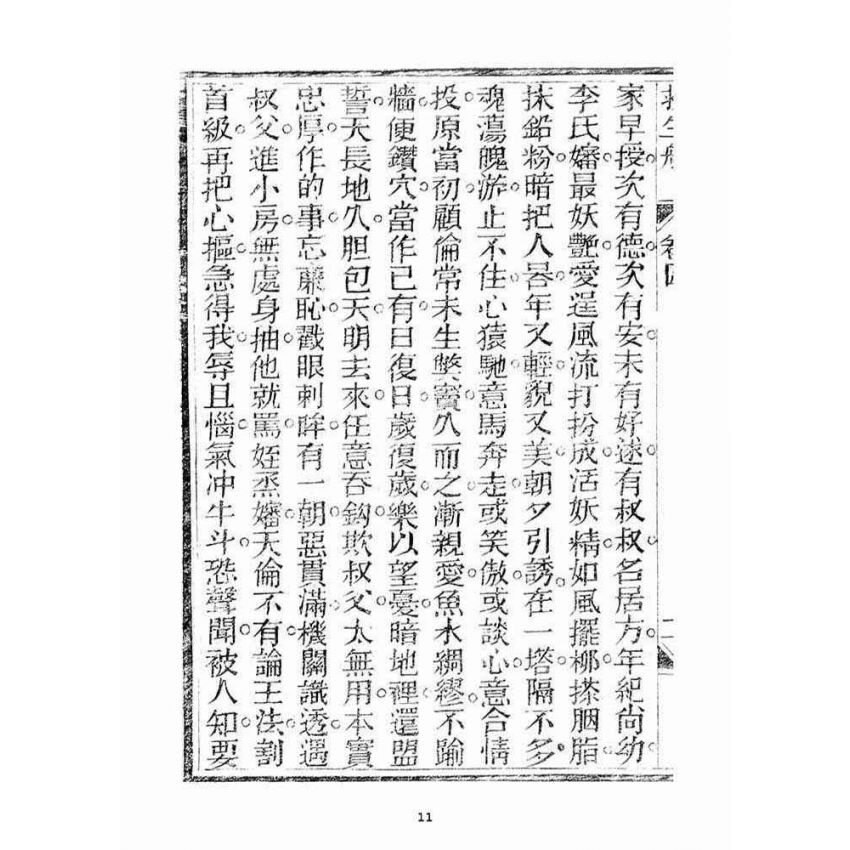 救生船 卷四 二
家早授次有德次有安未有好逑有叔叔名居方年紀尚幼
李氏嬸最妖艷愛逞風流打扮成活妖精如風擺柳搽胭脂
抹鉛粉暗把人 年又輕貌又美朝夕引誘在一塔隔不多
魂蕩魄游止不住心猿馳意馬奔走或笑傲或談心意合情
投原當初顧倫常未生獘竇久而之漸親愛魚水綢繆不踰
牆便鑽穴當作已有日復日歲復歲樂以望憂暗地裡還盟
誓天長地久胆包天明去來任意吞鈎欺叔父太無用本實
忠厚作的事忘廉恥戳眼刺眸有一朝惡貫滿機關識透遇
叔父進小房無處身抽他就罵姪烝嬸天倫不有論王法割
首級再把心摳急得我辱且惱氣冲牛斗恐聲聞被人知要
11